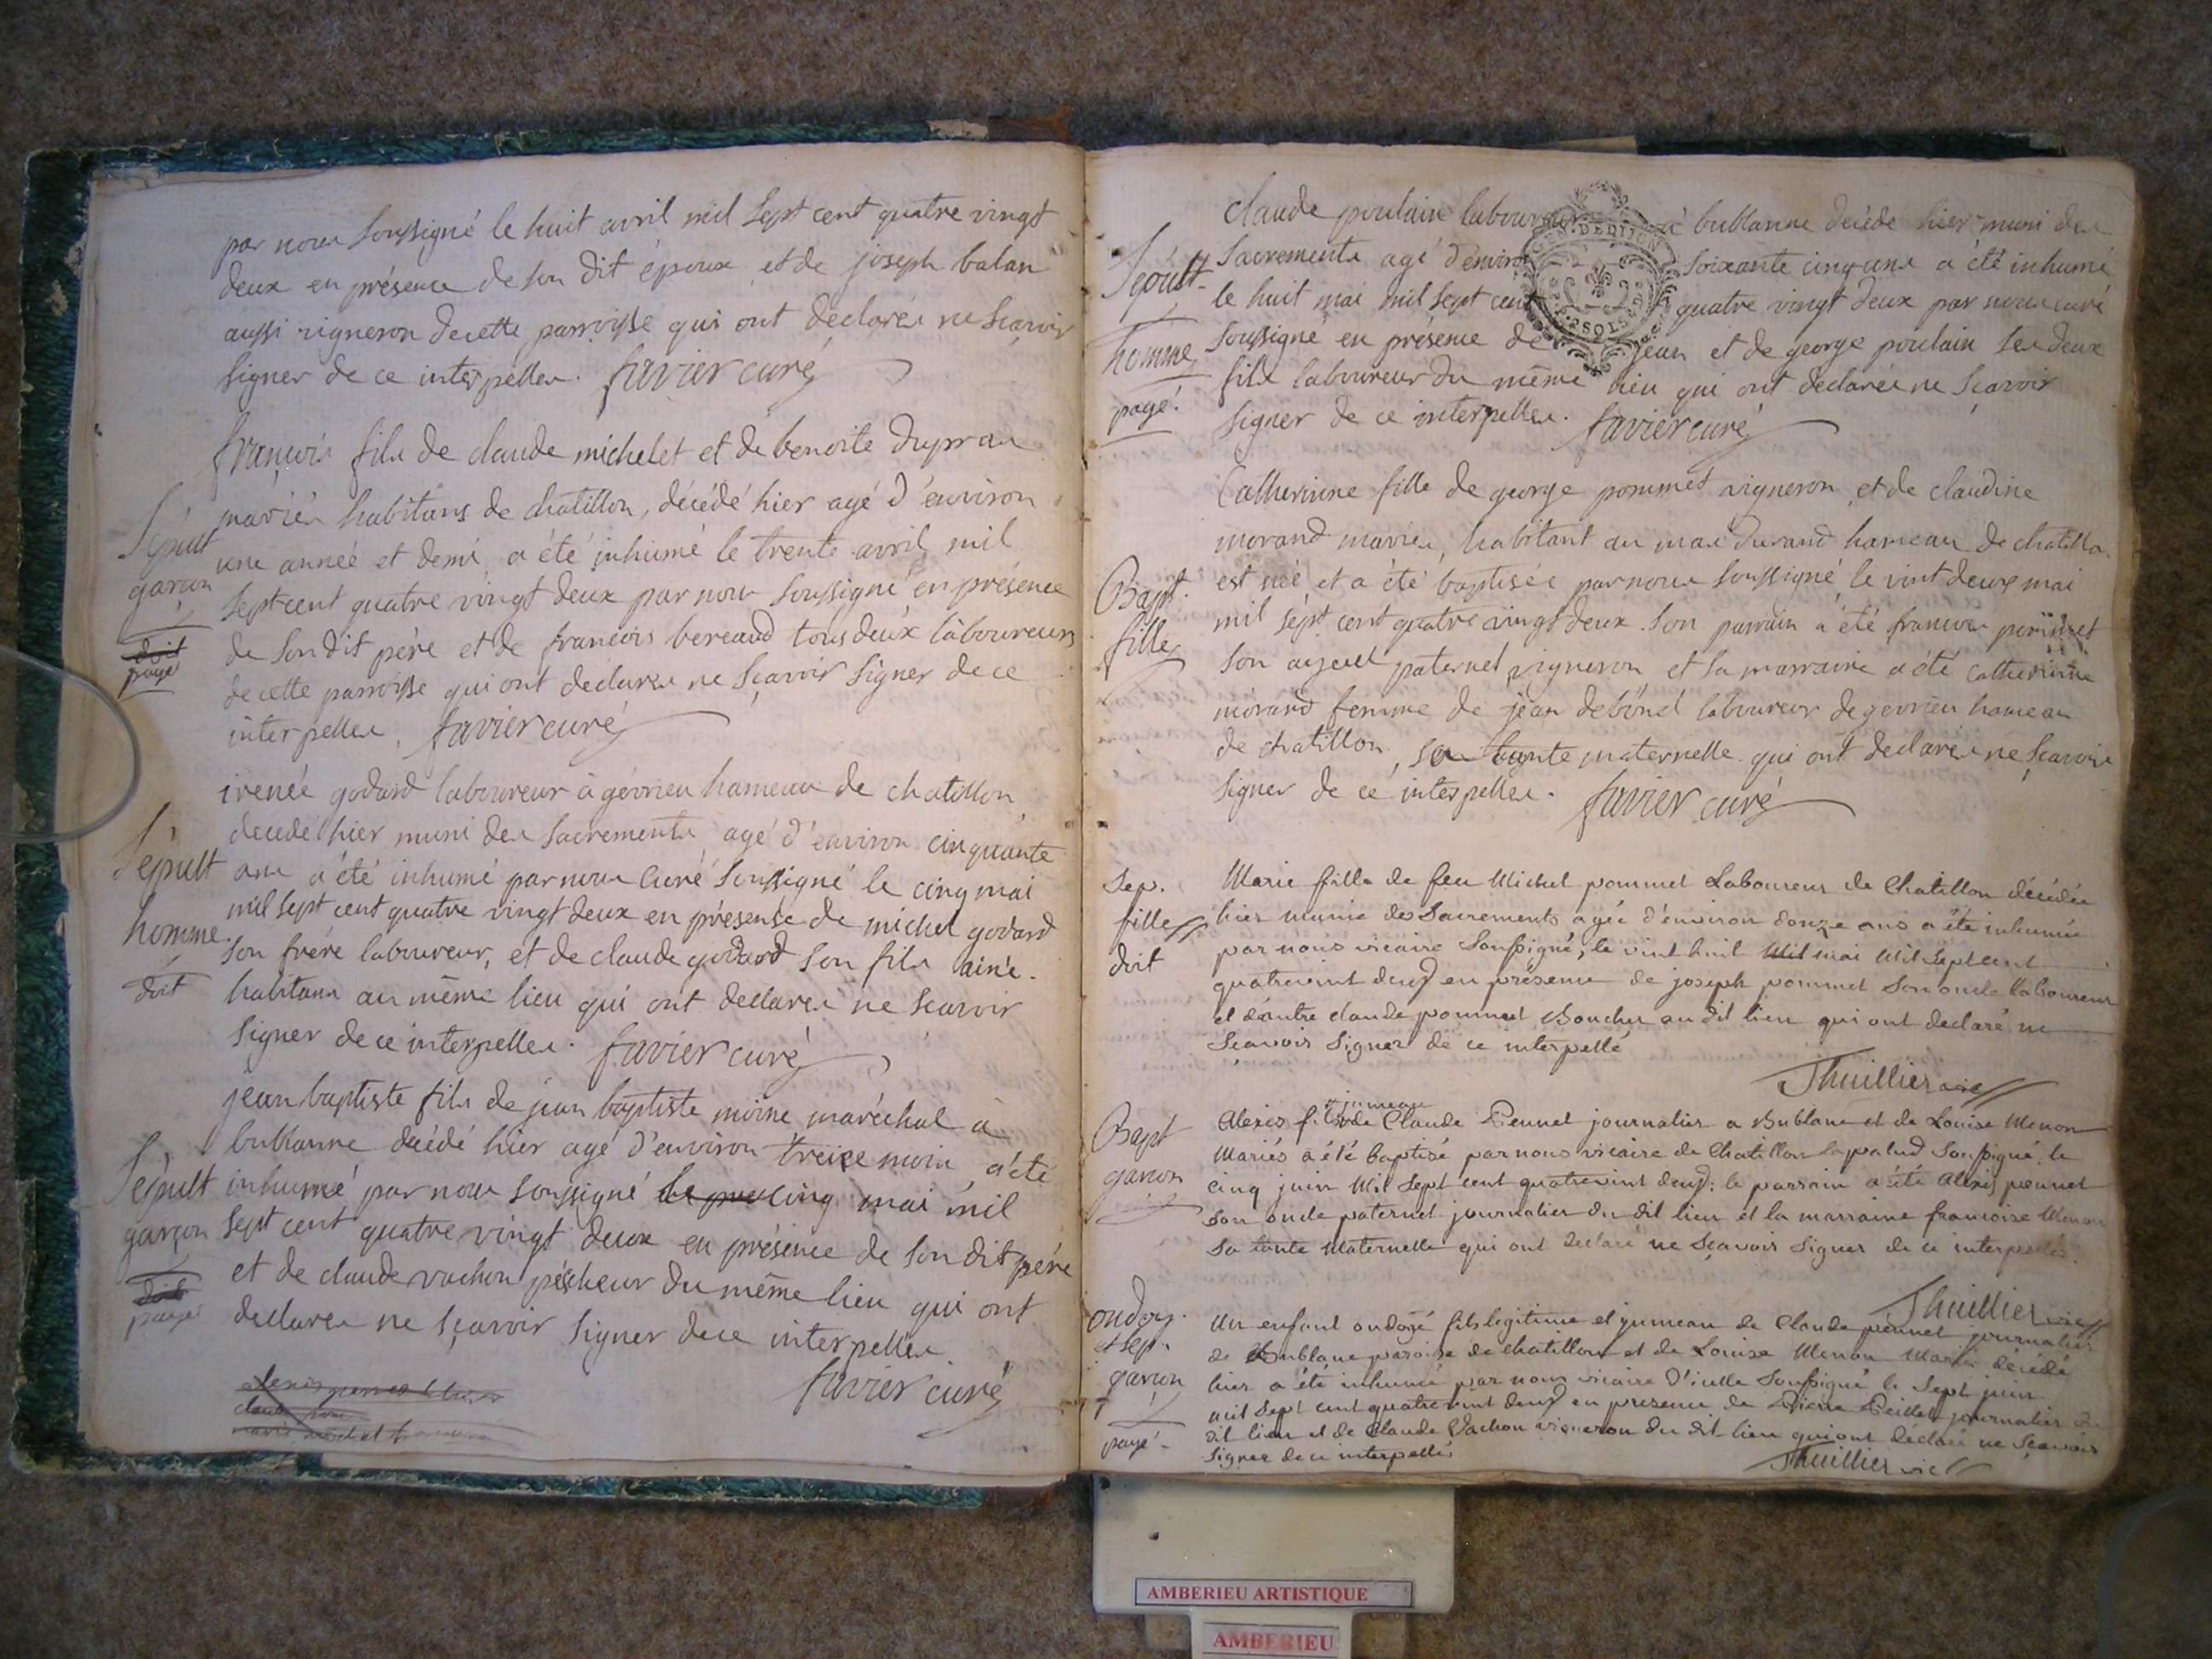 par nous soussigné le huit avril mil sept cent quatre vingt
deux en présence de son dit époux et de joseph balan
aussi vigneron decette parroisse qui ont declarés ne scavoir
signer de ce interpellés. favier curé
françois fils de claude michelet et de benoite dupras
mariés habitans de chatillon, décédé hier agé d'environ
Sépult une année et demi a été inhumé le trente avril mil
garçon sept cent quatre vingt deux par nous soussigné en présence
doit de son dit père et de francois bereaud tous deux laboureurs
payé decette parroisse qui ont déclarés ne sçavoir signer de ce
interpellés. favier curé
irenée godard laboureur à gévrieu hameau de chatillon
decedé hier muni des sacrements agé d'environ cinquante
Sépult ans a été inhumé par nous curé soussigné le cinq mai
mil sept cent quatre vingt deux en présense de michel godard
homme son frére laboureur, et de claude godard son fils ainé
doit habitans au même lieu qui ont declarés ne scavoir
signer de ce interpellés. favier curé
jean baptiste fils de jean baptiste moine maréchal a
bublanne décédé hier agé d'environ treize mois a été
Sépult inhumé par nous soussigné le cinq mai mil
garçon sept cent quatre vingt deux en présence de son dit pére
et de claude vachon péscheur du même lieu qui ont
doit payé declarés ne sçavoir signer de ce interpellés
favier curé
claude poulain laboureur à bublanne décédé hier muni des
Sépult sacrements agé d'environ soixante cinq ans a été inhumé
le huit mai mil sept cent quatre vingt deux par nous curé
GEN. DE DIJON
2 SOLS
homme soussigné en présence de jean et de george poulain ses deux
payé. fils laboureur du même lieu qui ont declarés ne scavoir
signer de ce interpellés. favier curé
Catherinne fille de george pommet vigneron et de claudine
morand mariés, habitant au mas durand hameau de chatillon
Bapt. est née et a été baptisée par nous soussigné le vint deux mai
fille mil sept cent quatre vingt deux son parrain a été francois pommet
son ayeul paternel vigneron et sa marraine a été catherinne
morand femme de jean debonel laboureur de gevrieu hameau
de chatillon, sa tante maternelle qui ont declarés ne scavoir
signer de ce interpellés. favier curé
Sep. Marie fille de feu Michel pommet Laboureur de Chatillon décédée
fille hier munie des Sacrements agée d'environ douze ans a été inhumée
doit par nous vicaire Soussigné, le vint huit Mil mai Mil Sept cent
quatrevint deux en présence de joseph pommet Son oncle Laboureur
et d'autre claude pommet Boucher au dit lieu qui ont declaré ne
Sçavoir Signer de ce interpellé
Thuillier vic
jumeau
Bapt Alexis fils de Claude Pennet journalier a Bublane et de Louise Menon
garcon Mariés a été baptisé par nous vicaire de Chatillon lapalud Soussigné le
cinq juin Mil Sept cent quatrevint deux: le parrain a été Alexis pennet
son oncle paternel journalier du dit lieu et la marraine francoise Menon
Sa tante Maternelle qui ont declaré ne Sçavoir Signer de ce interpellés
Thuillier vic
ondoy. Un enfant ondoyé fils legitime et jumeau de Claude pennet journalier
et sep. de Bublane paroisse de Chatillon et de Louise Menon Mariés décédé
garcon hier a été inhumé par nous vicaire d'icelle Soussigné le Sept juin
mil Sept cent quatrevint deux en presence de Pierre Peillet journalier du
payé dit lieu et de Claude Vachon vigneron du dit lieu qui ont declaré ne Sçavoir
Signer de ce interpellés
Thuillier vic
AMBERIEU ARTISTIQUE
AMBERIEU